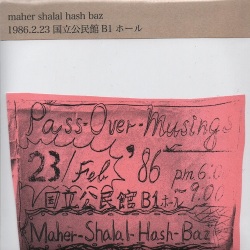 maher shalal hash baz
1986.2.23 国立公民館 B1 ホール
Pass-Over-Musings
23/Feb/'86 pm 6:0
国立公民館 B1ホール 〜9.00
Maher-Shalal-Hash-Baz